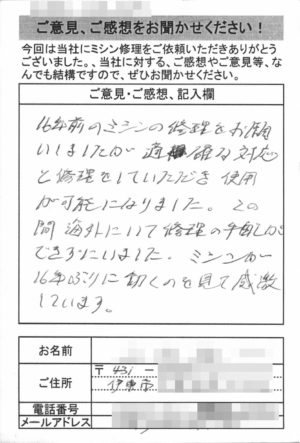 ご意見、ご感想をお聞かせください！
今回は当社にミシン修理をご依頼いただきありがとう
ございました。、当社に対する、ご感想やご意見等、な
んでも結構ですので、ぜひお聞かせください。
ご意見・ご感想、記入欄
16年前のミシンの修理をお願
いしましたが 適確な対応
と修理をしていただき 使用
が可能になりました。この
間 海外にいて修理の手配が
できずにいました。ミシンが
16年ぶりに動くのを見て感激
しています。
お名前
ご住所
〒 431 －
伊東市
電話番号
メールアドレス